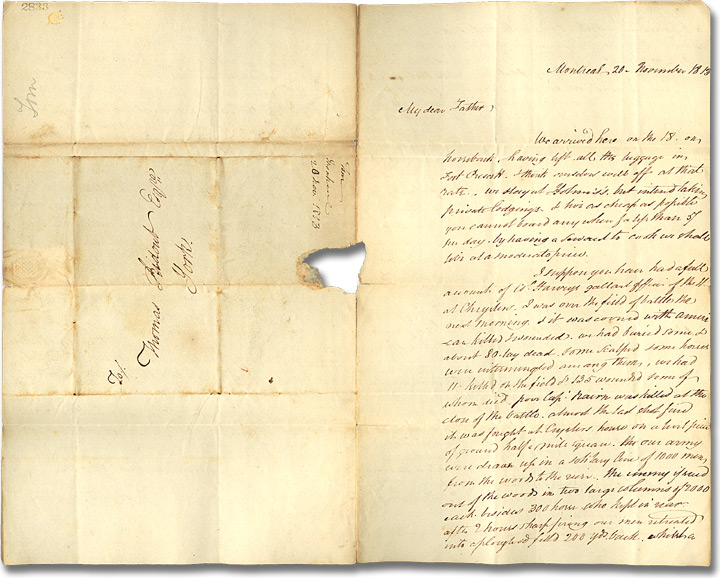 2833
Tom
To/.
Thomas Ridout Esqre
York
Tom
Montreal
20 Nov. 1813
Montreal, 20 November 1813
My dear Father,
We arrived here on the 18. on
horseback, having left all the luggage in
Fort Prescott. I think we
off at that
rate. we stay at
but intend taking
private lodgings, & live as cheap as possible
you cannot board any where for less than
per day. by having a servant to cook we shall
live at a moderate price.
I suppose you have had a full
account of Col. Harveys gallant affair of the 11
at Chrysters. I was over the field of battle the
next morning, & it was covered with Ameri
can killed & wounded. we had buried some &
about 80. lay dead. some scalped some horses
were intermingled among them, we had
11. killed on the field & 135 wounded some of
whom died. poor Capt. Nairn was killed at the
close of the battle. almost the last shot fired
it was fought at Cryslers house on a level piece
of ground half a mile square. the our army
were drawn up in a solitary line of 1000 men,
from the woods to the river. the enemy issued
out of the woods in two large columns of 2000
each. besides 300 horse who kept in rear
after 2 hours sharp firing our men retreated
into a ploughed field 200 yds. back.